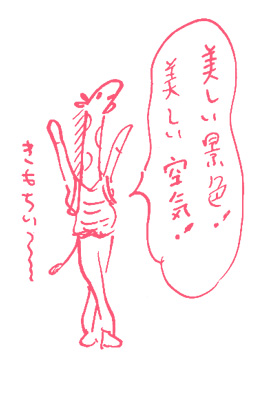 美しい景色!!
美しい空気!!
きもちい〜